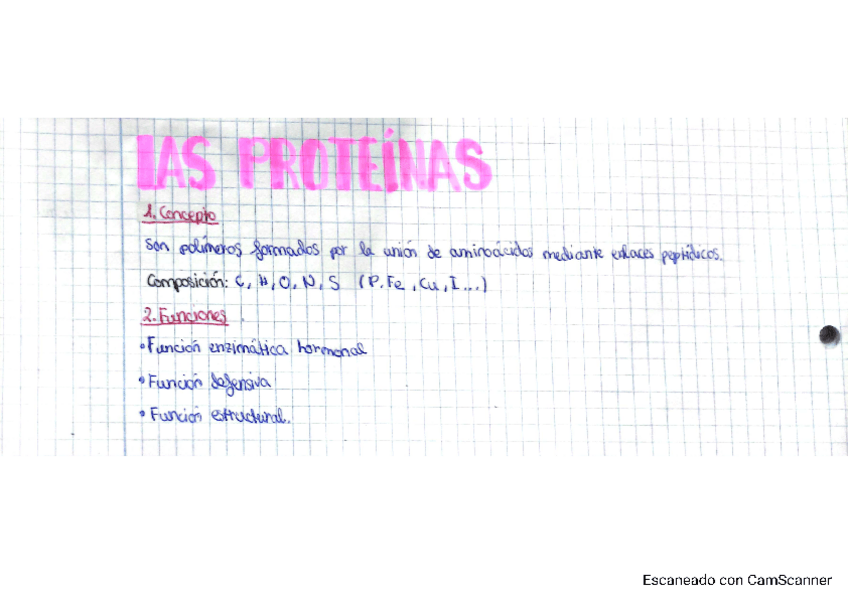 LAS PROTEÍNAS
1. Concepto
Son polímeros formados por la unión de aminoácidos mediante enlaces peptídicos.
Composición: C, H, O, N, S (P. Fe, Cu, I...)
2. Funciones
• Función enzimática hormonal
• Función defensiva
• Función estructural.
Escaneado con CamScanner